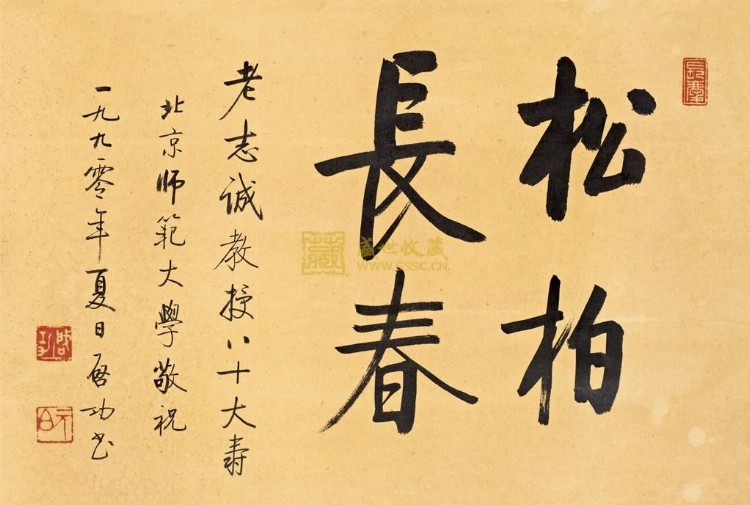 松柏
長春
老志诚教授八十大寿
北京师範大學敬祝
一九九零年夏日启功书
盛世收藏
WWW.SSSC.CN
藏
启功